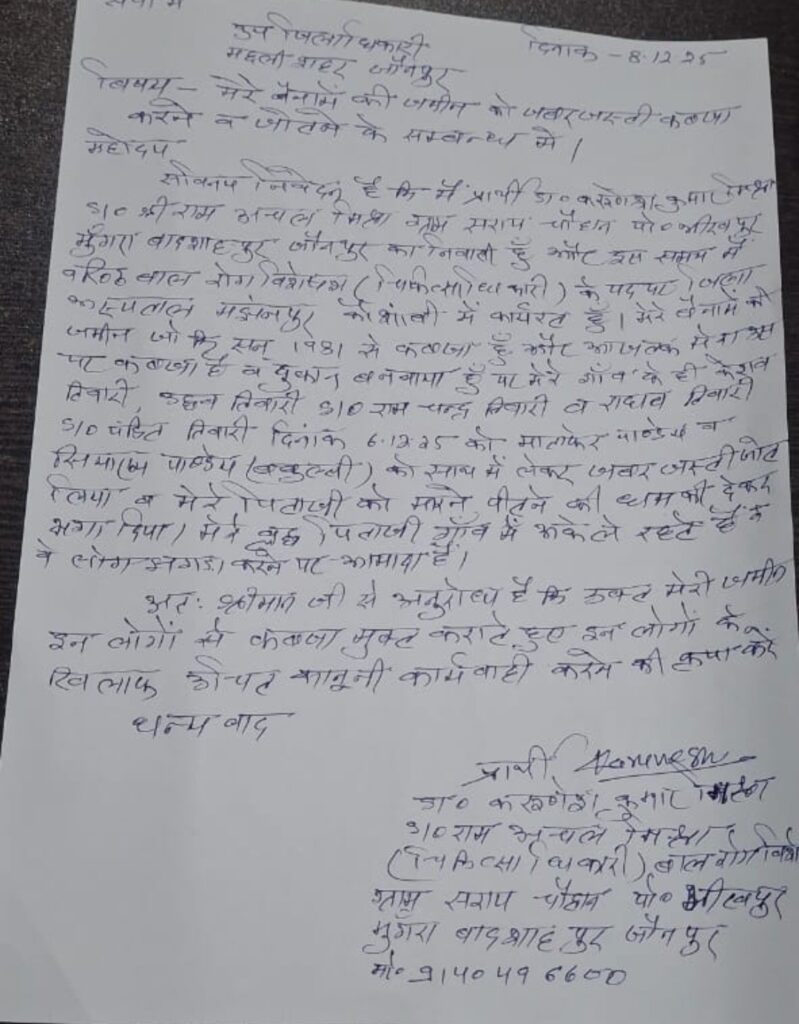 सेवा में
उप जिलाधिकारी
मछली शहर जौनपुर
दिनांक - 8.12.25
विषय - मेरे बैनामें की जमीन को जबरजस्ती कब्जा
करने व जोतने के सम्बन्ध में।
महोदय
सविनय निवेदन है कि मैं प्रार्थी डा० करूणेश कुमार मिश्रा
S/O श्री राम अन्चल मिश्रा ग्राम सराय चौहान पो० भीखपुर
मुँगरा बादशाहपुर जौनपुर का निवासी हूँ और इस समय में
वरिष्ठ बाल रोग विशेषज्ञ (चिकित्साधिकारी) के पद पर जिला
अस्पताल मझंनपुर कौशांबी में कार्यरत हूँ। मेरे बैनामें की
जमीन जो कि सन् 1981 से कब्जा हूँ और आजतक मेरा उस
पर कब्जा है व दुकान बनवाया हूँ पर मेरे गाँव के ही केशव
तिवारी, तिवारी S/O राम चन्द्र तिवारी व राघव तिवारी
S/O पंडित तिवारी दिनांक 6.12.25 को माताफेर पाण्डेय व
सियाराम पाण्डेय (बकुल्ली) को साथ में लेकर जबरजस्ती जोत
लिया व मेरे पिताजी को मारने पीटने की धमकी देकर
भगा दिया। मेरे वृद्ध पिताजी गाँव में अकेले रहते हैं
वे लोग झगड़ा करने पर आमादा हैं।
अतः श्रीमान जी से अनुरोध है कि उक्त मेरी जमीन
इन लोगों से कब्जा मुक्त कराते हुए इन लोगों के
खिलाफ उचित कानूनी कार्यवाही करने की कृपा करें
धन्यवाद
प्रार्थी Karunesh
डा० करूणेश कुमार मिश्रा
S/O राम अन्चल मिश्रा
(चिकित्साधिकारी) बाल रोग विशे
ग्राम सराय चौहान पो० भीखपुर
मुँगरा बादशाहपुर जौनपुर
मो० 9140496600